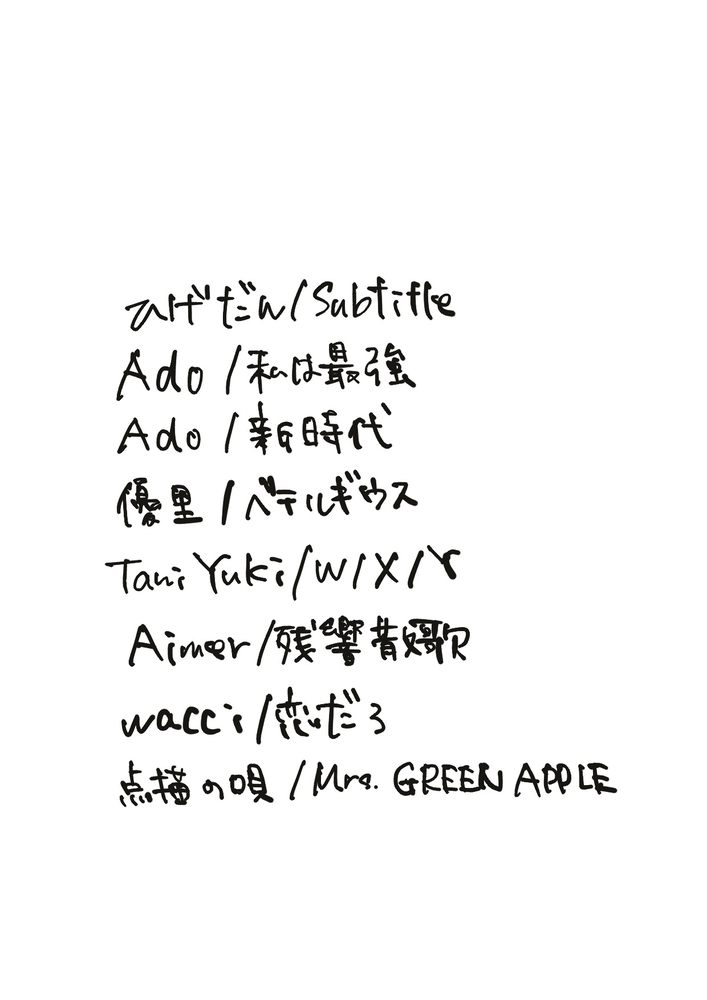 ひげだん/Subtitle
Ado/私は最強
Ado/新時代
優里/ベテルギウス
Tani Yuki/W/X/Y
Aimer/残響散歌
wacci/恋だろ
点描の唄/Mrs. GREEN APPLE